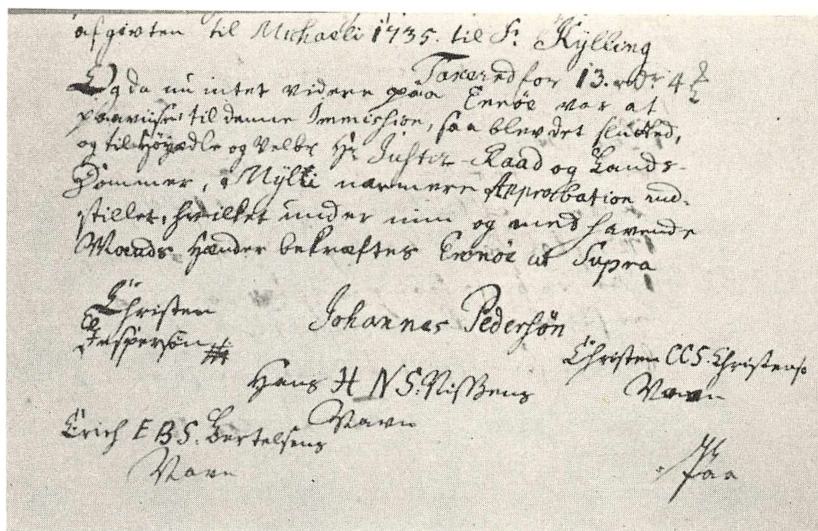 afgivten til Michaeli 1735. til Sr. Kylling
Taxered for 13. rdr 4
Og da nu intet videre paa Ennöe var at
paaviise til denne Immission, saa blev det slutted,
og til Höyædle og Velbr Hr Justiz-Raad og Lands-
Dommer, Mylti nærmere Approbation ind-
stillet, hvilket under min og med havende
Mænds Hænder bekræftes Ennöe ut Supra
Christen
Jespersön
Johannes Pedersön
Christen CCS. Christens
Navn
Hans H N S. Nissens
Navn
Erich E B S. Bertelsens
Navn
Paa